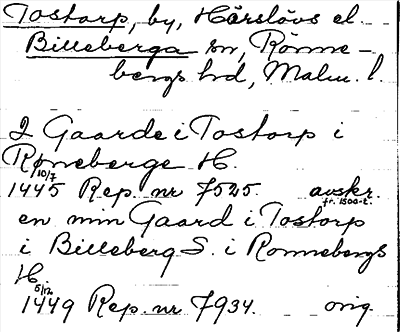 Tostarp, by, Härslövs el.
Billeberga sn, Rönne-
bergs hd, Malm. l.
2 Gaarde i Tostorp i
Røneberge H.
10/7
1445 Rep. nr 7525. avskr.
fr. 1500-t.
en min Gaard i Tostorp
i Billeberg S. i Ronnebergs
H.
5/12
1449 Rep. nr 7934. orig.